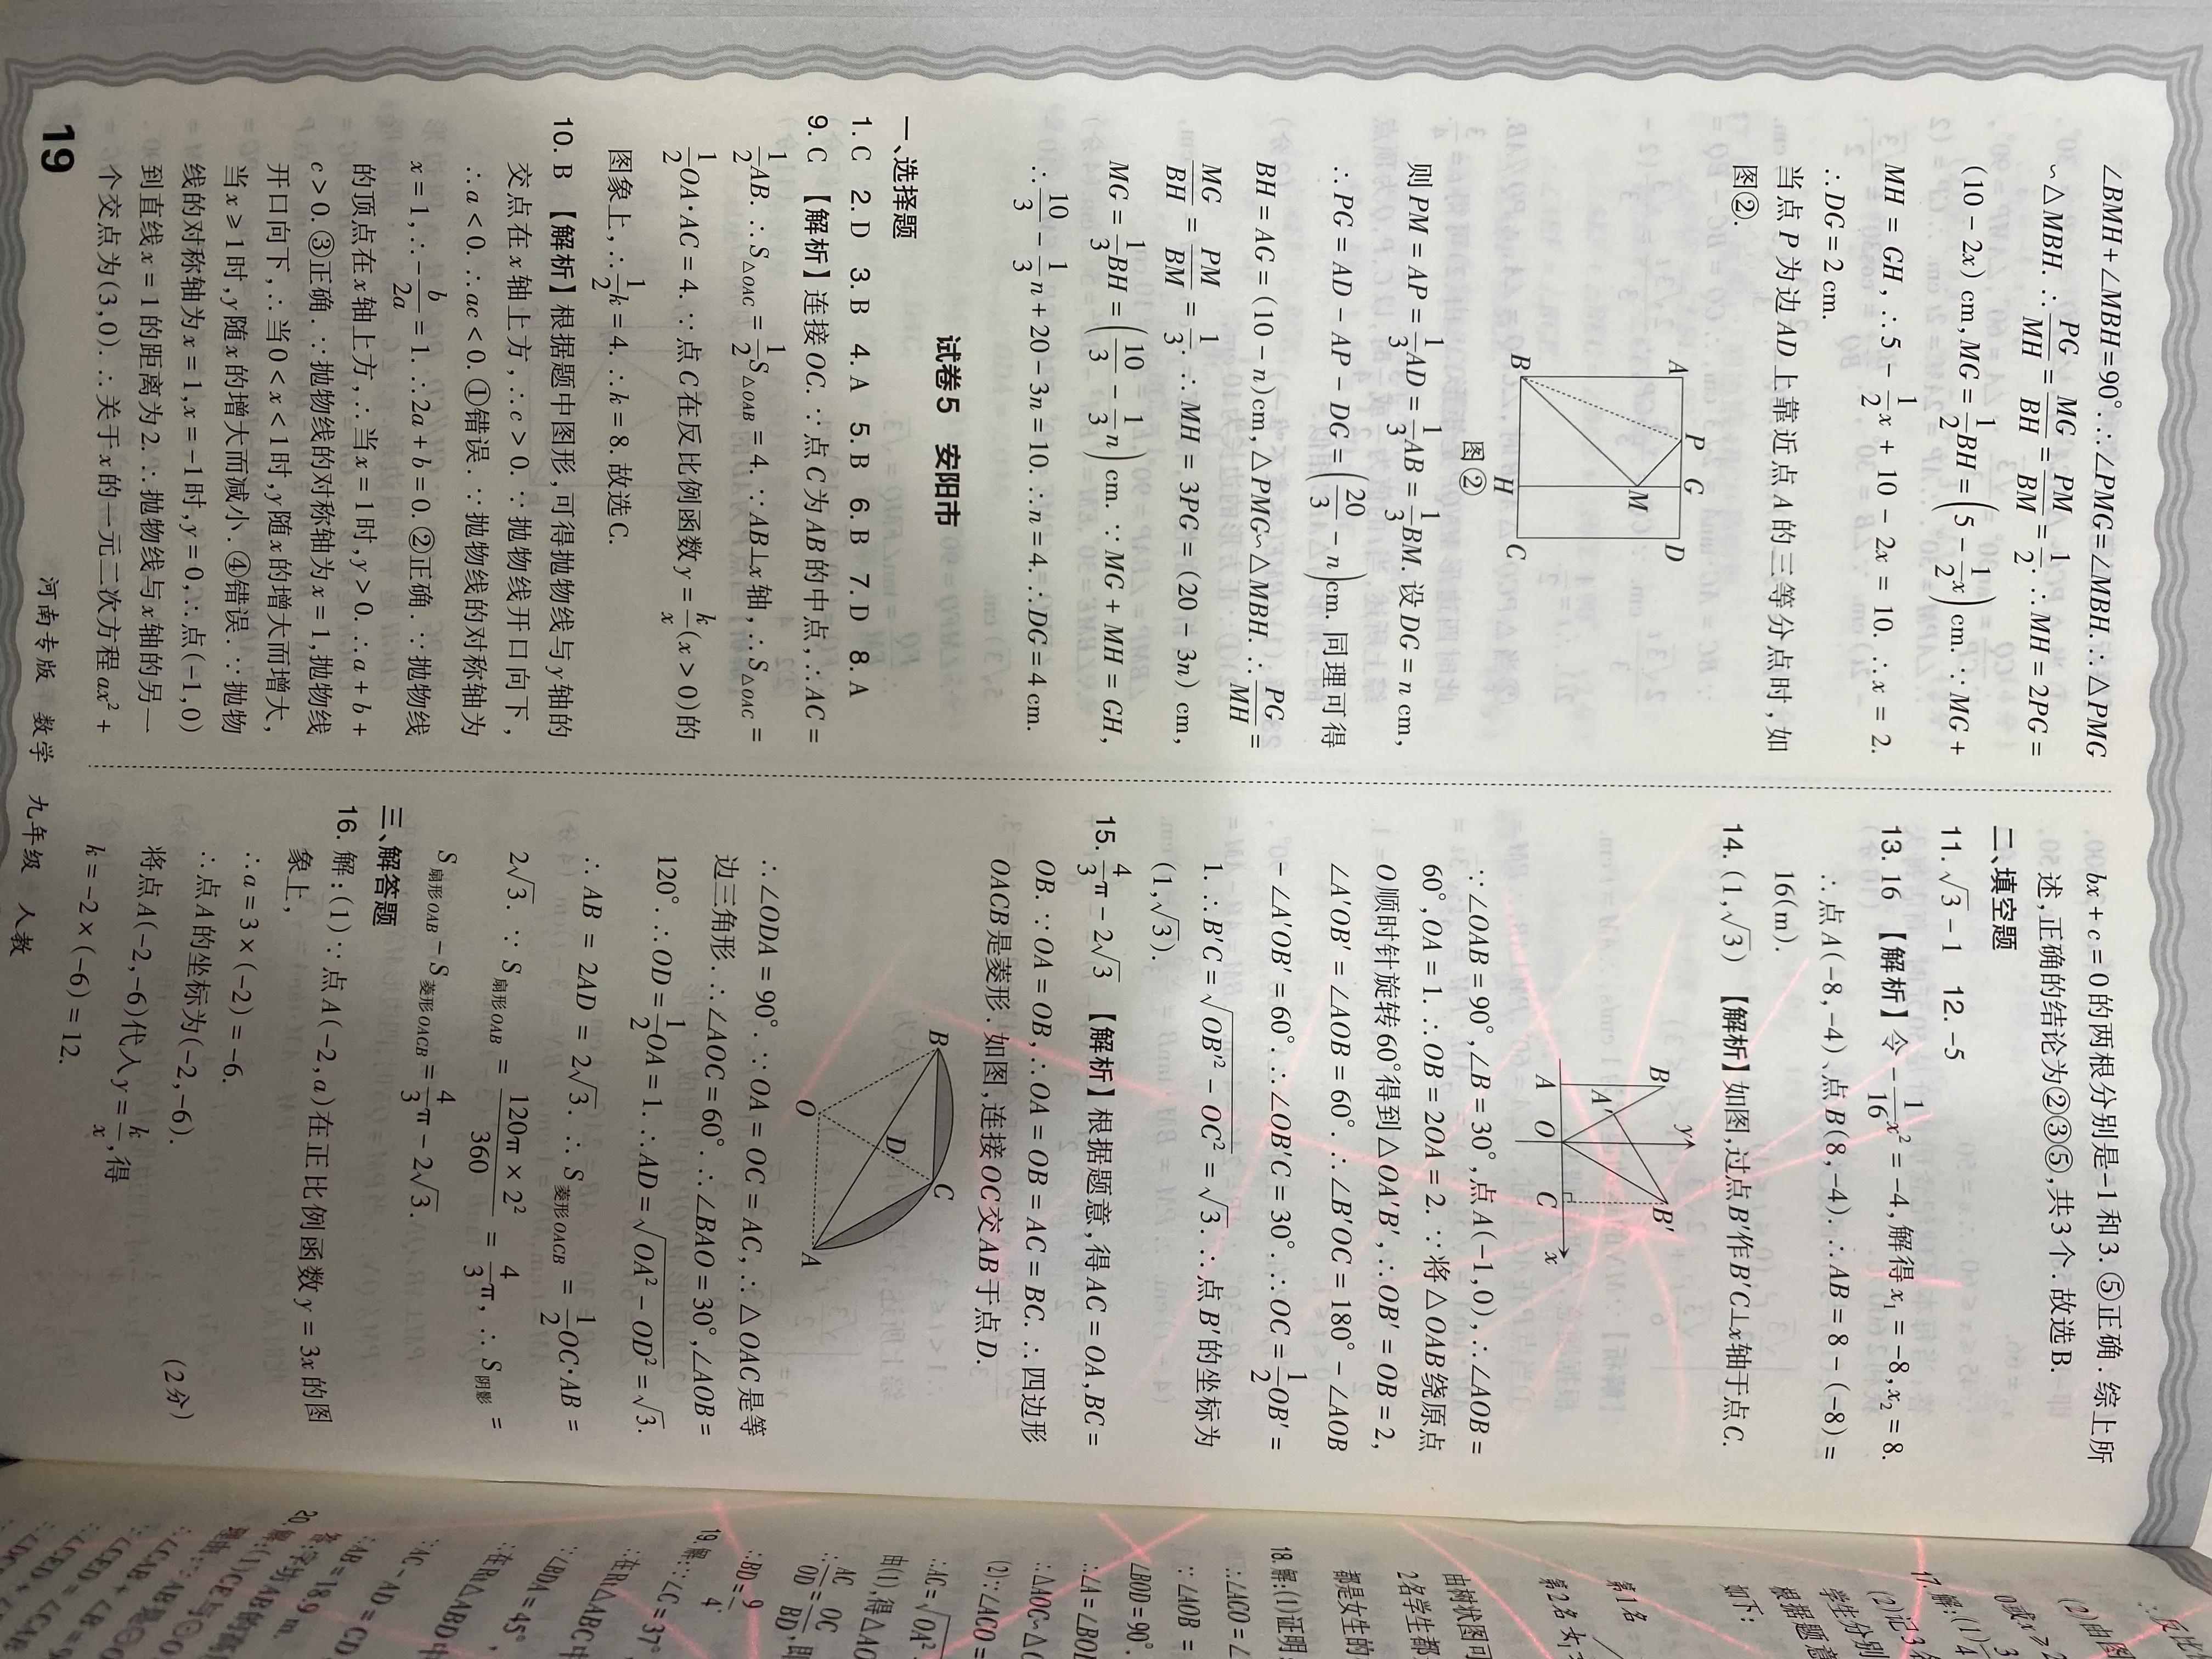 ∠BMH+∠MBH=90°.∴∠PMG=∠MBH.∴△PMG
∽△MBH.∴PG/MH=MG/BH=PM/BM=1/2.∴MH=2PG=
(10-2x) cm,MG=1/2BH=(5-1/2x) cm.∵MG+
MH=GH,∴5-1/2x+10-2x=10.∴x=2.
∴DG=2 cm.
当点P为边AD上靠近点A的三等分点时,如
图②.
A P G D
M
B H C
图②
则PM=AP=1/3AD=1/3AB=1/3BM.设DG=n cm,
∴PG=AD-AP-DG=(20/3-n)cm.同理可得
BH=AG=(10-n)cm,△PMG∽△MBH.∴PG/MH=
MG/BH=PM/BM=1/3.∴MH=3PG=(20-3n) cm,
MG=1/3BH=(10/3-1/3n) cm.∵MG+MH=GH,
∴10/3-1/3n+20-3n=10.∴n=4.∴DG=4 cm.
试卷5 安阳市
一、选择题
1.C 2.D 3.B 4.A 5.B 6.B 7.D 8.A
9.C 【解析】连接OC.∵点C为AB的中点,∴AC=
1/2AB.∴S△OAC=1/2S△OAB=4.∵AB⊥x轴,∴S△OAC=
1/2OA·AC=4.∵点C在反比例函数y=k/x(x>0)的
图象上,∴1/2k=4.∴k=8.故选C.
10.B 【解析】根据题中图形,可得抛物线与y轴的
交点在x轴上方,∴c>0.∵抛物线开口向下,
∴a<0.∴ac<0.①错误.∵抛物线的对称轴为
x=1,∴-b/2a=1.∴2a+b=0.②正确.∵抛物线
的顶点在x轴上方,∴当x=1时,y>0.∴a+b+
c>0.③正确.∵抛物线的对称轴为x=1,抛物线
开口向下,∴当0<x<1时,y随x的增大而增大,
当x≥1时,y随x的增大而减小.④错误.∵抛物
线的对称轴为x=1,x=-1时,y=0,∴点(-1,0)
到直线x=1的距离为2.∴抛物线与x轴的另一
个交点为(3,0).∴关于x的一元二次方程ax²+
bx+c=0的两根分别是-1和3.⑤正确.综上所
述,正确的结论为②③⑤,共3个.故选B.
二、填空题
11.√3-1 12.-5
13.16 【解析】令-1/16x²=-4,解得x₁=-8,x₂=8.
∴点A(-8,-4)、点B(8,-4).∴AB=8-(-8)=
16(m).
14.(1,√3) 【解析】如图,过点B′作B′C⊥x轴于点C.
B y B′
A′
A O C x
∵∠OAB=90°,∠B=30°,点A(-1,0),∴∠AOB=
60°,OA=1.∴OB=2OA=2.∵将△OAB绕原点
O顺时针旋转60°得到△OA′B′,∴OB′=OB=2,
∠A′OB′=∠AOB=60°.∴∠B′OC=180°-∠AOB
-∠A′OB′=60°.∴∠OB′C=30°.∴OC=1/2OB′=
1.∴B′C=√(OB′²-OC²)=√3.∴点B′的坐标为
(1,√3).
15.4/3π-2√3 【解析】根据题意,得AC=OA,BC=
OB.∵OA=OB,∴OA=OB=AC=BC.∴四边形
OACB是菱形.如图,连接OC交AB于点D.
B C
D
O A
∴∠ODA=90°.∵OA=OC=AC,∴△OAC是等
边三角形.∴∠AOC=60°.∴∠BAO=30°,∠AOB=
120°.∴OD=1/2OA=1.∴AD=√(OA²-OD²)=√3.
∴AB=2AD=2√3.∴S菱形OACB=1/2OC·AB=
2√3.∵S扇形OAB=120π×2²/360=4/3π,∴S阴影=
S扇形OAB-S菱形OACB=4/3π-2√3.
三、解答题
16.解:(1)∵点A(-2,a)在正比例函数y=3x的图
象上,
∴a=3×(-2)=-6.
∴点A的坐标为(-2,-6).
(2分)
将点A(-2,-6)代入y=k/x,得
k=-2×(-6)=12.
19
河南专版 数学 九年级 人教
(2)由图
17.解:(1)3/4
(2)记3名
学生分别
根据题意
如下:
第1名
第2名 女₁
由树状图可
2名学生都
都是女生的
18.解:(1)证明:
∴∠ACO=∠
∵∠AOB=
∠BOD=90°.
∴∠A=∠BOD
∴△AOC∽△O
(2)∵∠ACO=
∴AC=√OA²
由(1),得△AO
∴AC/OD=OC/BD,即
∴BD=9/4.
19.解:∵∠C=37°
∵在Rt△ABC中
∠BDA=45°,
∴在Rt△ABD中
∵AC-AD=CD
∴AB=18.9 m.
20.解:(1)CE与⊙O